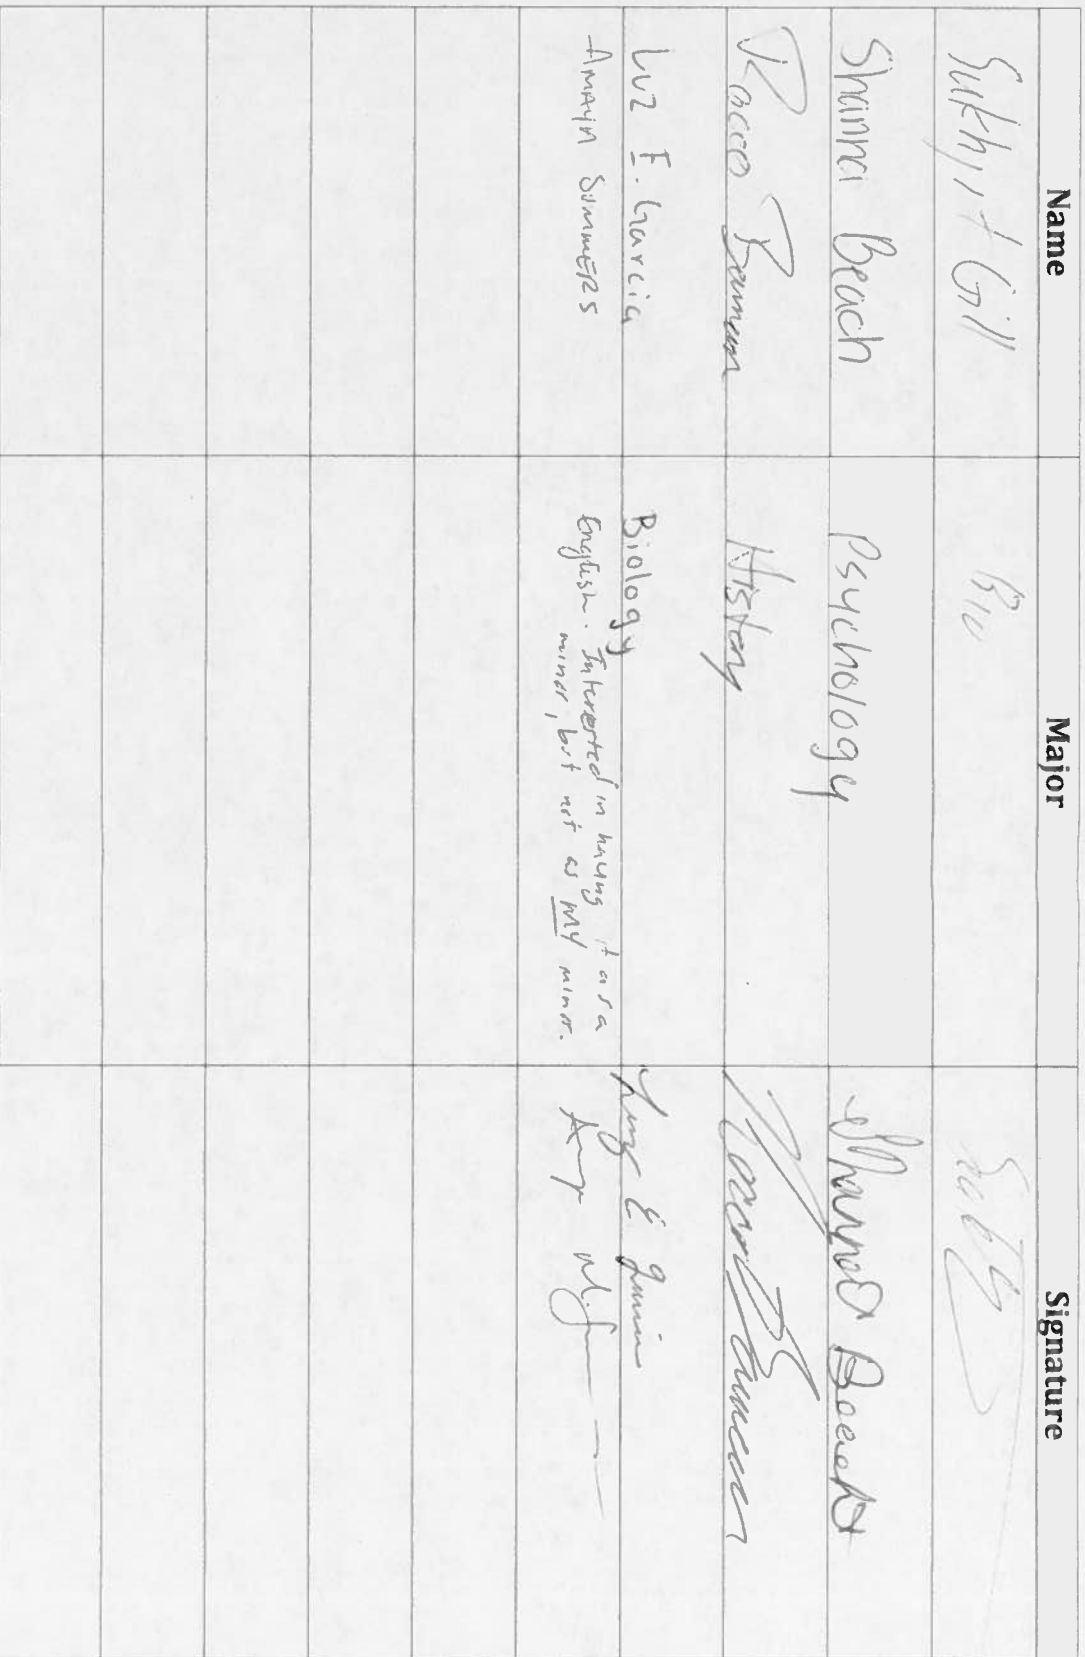 Name Major Signature
Sukhjit Gill Bio
Shanna Beach Psychology Shanna Beach
Rocco Bowman History Rocco Bowman
Luz E. Garcia Biology Luz E. Garcia
Amayn Summers English. Interested in having it as a
minor, but not as MY minor.